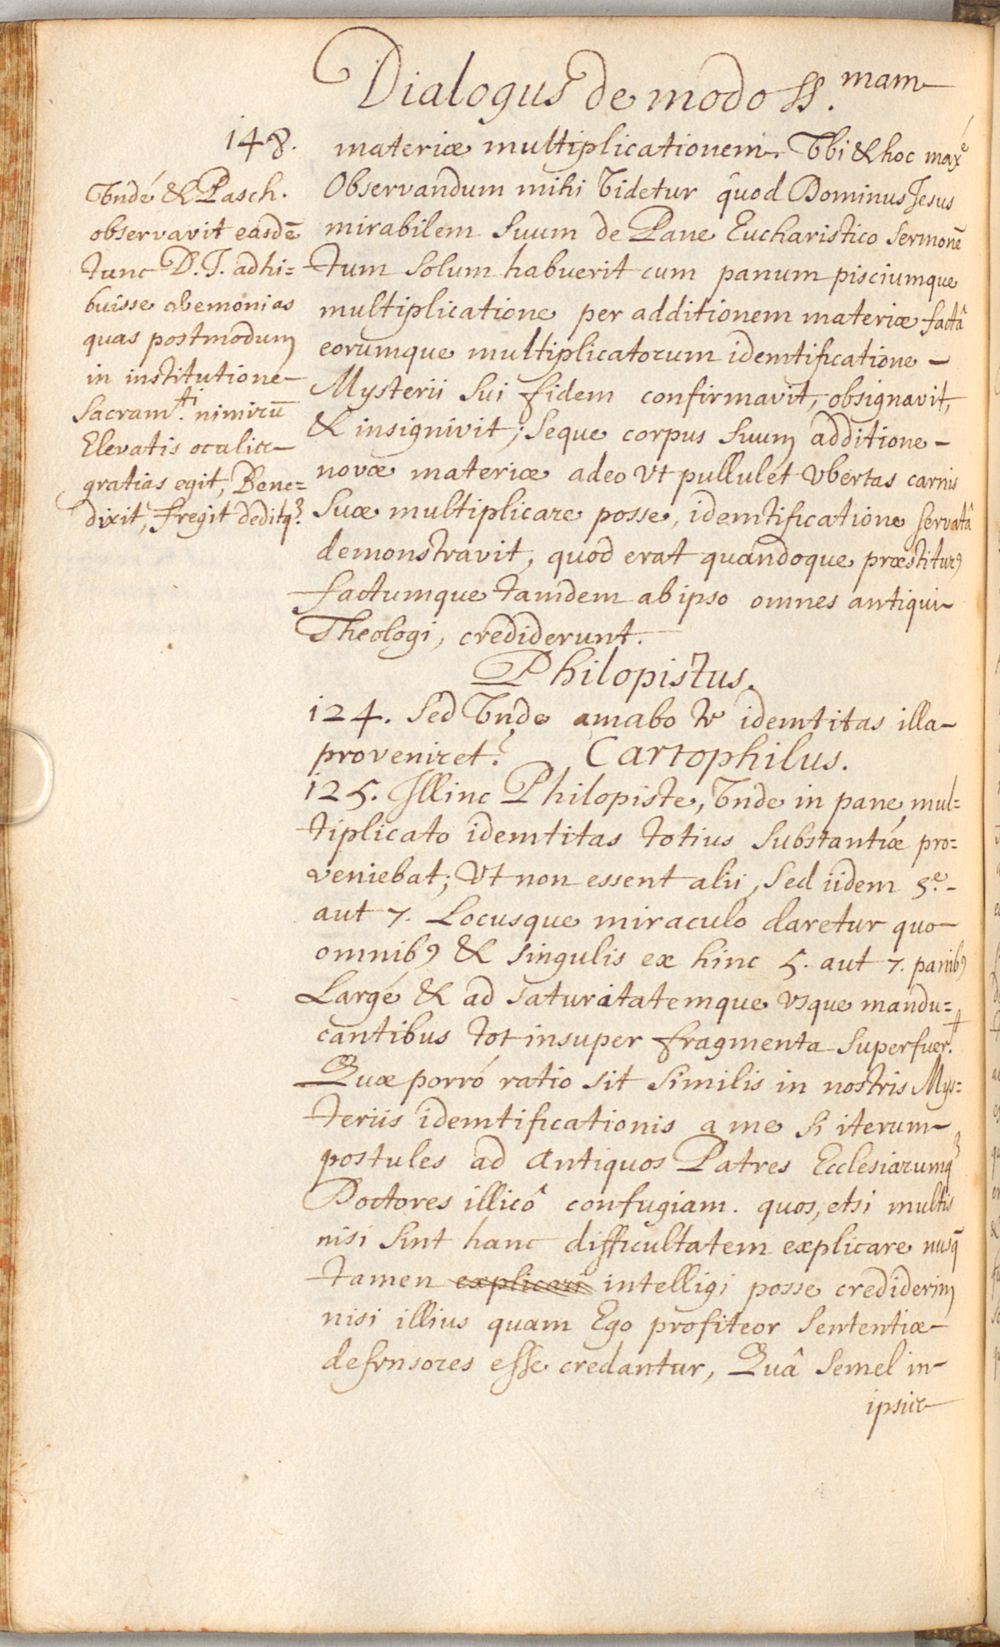 Dialogus de modo SS.mam
148.
Vndé & Pasch.
observavit easdē
tunc D. J. adhi=
buisse cæremonias
quas postmodum
in institutione
Sacram.ti nimirū
Elevatis oculis
gratias egit, Bene=
dixit, fregit deditq3.
materiæ multiplicationem. Vbi & hoc maxé
Observandum mihi Videtur quod Dominus Jesus
mirabilem suum de Pane Eucharistico sermonē
tum solum habuerit cum panum pisciumque
multiplicatione per additionem materiæ factâ
eorumque multiplicatorum identificatione
Mysterii sui fidem confirmavit, obsignavit,
& insignivit; seque corpus suum additione
novæ materiæ adeo Vt pullulet Vbertas carnis
suæ multiplicare posse, identificatione servatâ
demonstravit, quod erat quandoque præstitur9
factumque tamdem ab ipso omnes antiqui
Theologi, crediderunt.
Philopistus.
124. Sed Vnde amabo te identitas illa
proveniret? Cartophilus.
125. Illinc Philopiste, Vnde in pane mul=
tiplicato identitas totius substantiæ pro=
veniebat; Vt non essent alii, sed iidem 5.e
aut 7. Locusque miraculo daretur quo
omnib9 & singulis ex hinc 5. aut 7. panib9
Largé & ad saturitatemque vsque mandu=
cantibus tot insuper fragmenta superfuer.t
Quæ porró ratio sit similis in nostris Mys=
teriis identificationis a me si iterum
postules ad antiquos Patres Ecclesiarumq3
Doctores illicô confugiam. quos, etsi multis
nisi sint hanc difficultatem explicare nusq̄
tamen explicari intelligi posse crediderim
nisi illius quam Ego profiteor sententiæ
defensores esse credantur, Quâ semel in
ipsis